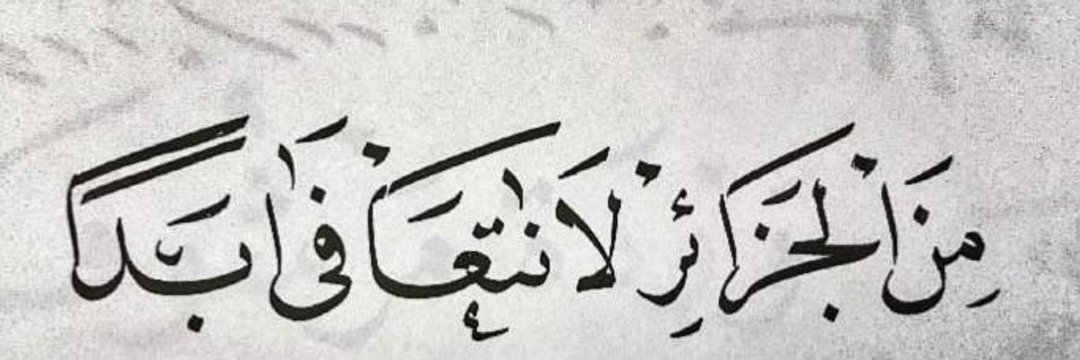 مِنَ الْجَزَائِرْ لَا نَتَعَافَىٰ أَبَدًا